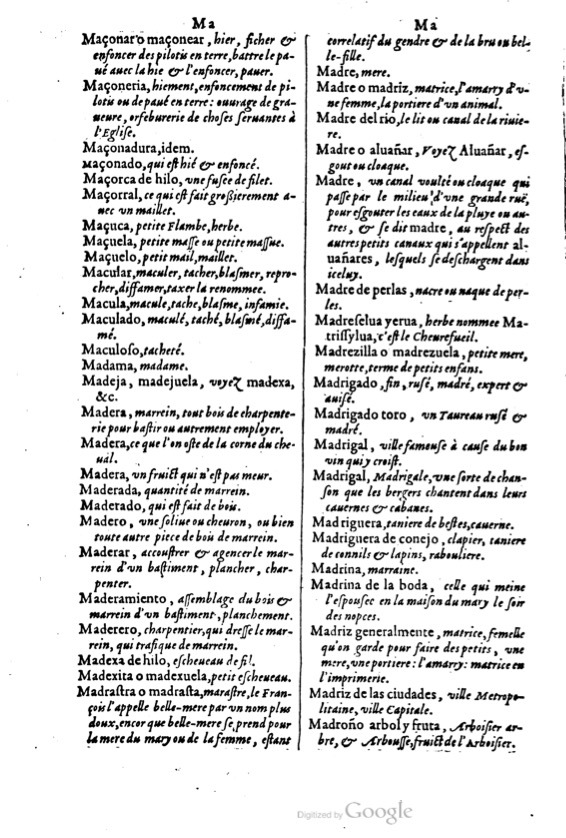 Ma
Maçonar o maçonear, hier, ficher &
enfoncer des pilotis en terre, battre le pa-
ué auec la hie & l'enfoncer, pauer.
Maçoneria, hiement, enfoncement de pi-
lotis ou de paué en terre: ouurage de gra-
ueure, orfeburerie de choses seruantes à
l'Eglise.
Maçonadura, idem.
Maçonado, qui est hié & enfoncé.
Maçorca de hilo, vne fusee de filet.
Maçorral, ce qui est fait grossierement a-
uec vn maillet.
Maçuca, petite Flambe, herbe.
Maçuela, petite masse ou petite massue.
Maçuelo, petit mail, maillet.
Macular, maculer, tacher, blasmer, repro-
cher, diffamer, taxer la renommee.
Macula, macule, tache, blasme, infamie.
Maculado, maculé, taché, blasmé, diffa-
mé.
Maculoso, tacheté.
Madama, madame.
Madeja, madejuela, voyez madexa,
&c.
Madera, marrein, tout bois de charpente-
rie pour bastir ou autrement employer.
Madera, ce que l'on oste de la corne du che-
ual.
Madera, vn fruict qui n'est pas meur.
Maderada, quantité de marrein.
Maderado, qui est fait de bois.
Madero, vne soliue ou cheuron, ou bien
toute autre piece de bois de marrein.
Maderar, accoustrer & agencer le mar-
rein d'vn bastiment, plancher, char-
penter.
Maderamiento, assemblage du bois &
marrein d'vn bastiment, planchement.
Maderero, charpentier, qui dresse le mar-
rein, qui trafique de marrein.
Madexa de hilo, escheueau de fil.
Madexita o madexuela, petit escheueau.
Madrastra o madrasta, marastre, le Fran-
çois l'appelle belle-mere par vn nom plus
doux, encor que belle-mere se prend pour
la mere du mary ou de la femme, estant
Ma
correlatif du gendre & de la bru ou bel-
le-fille.
Madre, mere.
Madre o madriz, matrice, l'amarry d'v-
ne femme, la portiere d'vn animal.
Madre del rio, le lit ou canal de la riuie-
re.
Madre o aluañar, Voyez Aluañar, es-
gout ou cloaque.
Madre, vn canal voulté ou cloaque qui
passe par le milieu d'vne grande ruë,
pour esgouter les eaux de la pluye ou au-
tres, & se dit madre, au respect des
autres petits canaux qui s'appellent al-
uañares, lesquels se deschargent dans
iceluy.
Madre de perlas, nacre ou naque de per-
les.
Madreselua yerua, herbe nommee Ma-
trissylua, c'est le Cheurefueil.
Madrezilla o madrezuela, petite mere,
merotte, terme de petits enfans.
Madrigado, fin, rusé, madré, expert &
auisé.
Madrigado toro, vn Taureau rusé &
madré.
Madrigal, ville fameuse à cause du bon
vin qui y croist.
Madrigal, Madrigale, vne sorte de chan-
son que les bergers chantent dans leurs
cauernes & cabanes.
Madriguera, taniere de bestes, cauerne.
Madriguera de conejo, clapier, taniere
de connils & lapins, rabouliere.
Madrina, marraine.
Madrina de la boda, celle qui meine
l'espousee en la maison du mary le soir
des nopces.
Madriz generalmente, matrice, femelle
qu'on garde pour faire des petits, vne
mere, vne portiere: l'amarry: matrice en
l'imprimerie.
Madriz de las ciudades, ville Metropo-
litaine, ville Capitale.
Madroño arbol y fruta, Arboisier ar-
bre, & Arbousse, fruict de l'Arboisier.
Digitized by Google